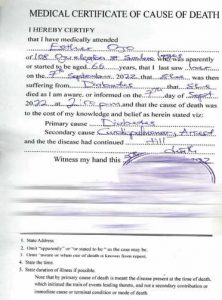 MEDICAL CERTIFICATE OF CAUSE OF DEATH
I HEREBY CERTIFY
that I have medically attended
Esther Ojo
of 108 who was apparently
or started to be aged 66 years, that I last saw her
on the 7th September, 2022 that She was then
suffering from Diabetes that She
died as I am aware. or informed on the 7th day of Sept
2022 at 2:15 pm and that the cause of death was
to the cost of my knowledge and belief as herein stated viz:
Primary cause Diabetes
Secondary cause Cardiopulmonary Arrest
and the the disease had continued till
Witness my hand this
1. State Address
2. Omit "apparently" or "or stated to be" as the case may be.
3. Omit "aware or when out of death is known from repeat.
4. State the time.
5. State duration of illness if possible.
Note that by primary cause of death is meant the disease present at the time of death,
which initiated the train of events leading thereto, and not a secondary contribution or
immediate cause or terminal condition or mode of death.